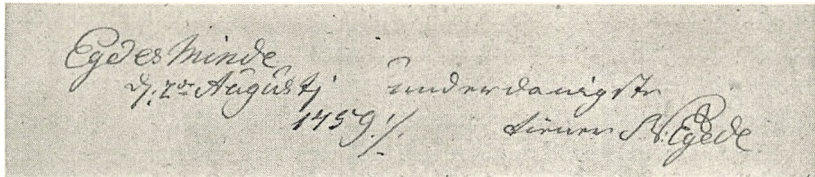 Egdes Minde
d. 2den Augustj underdanigste
1759 ./. tiener N: Egede